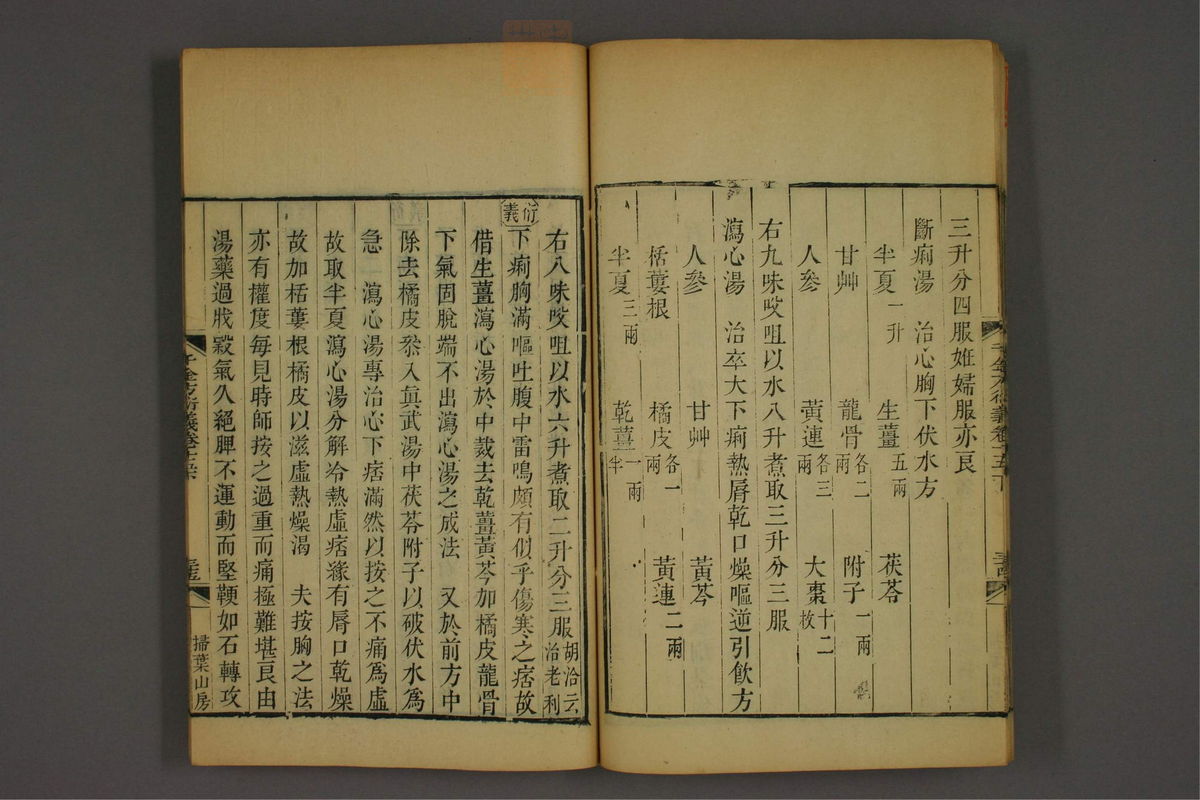 三升分四服妊婦服亦良
斷痢湯　治心胸下伏水方
半夏一升　生薑五兩　茯苓
甘艸　龍骨各二兩　附子一兩
人參　黃連各三兩　大棗十二枚
右九味㕮咀以水八升煮取三升分三服
瀉心湯　治卒大下痢熱脣乾口燥嘔逆引飲方
人參　甘艸　黃芩
栝蔞根　橘皮各一兩　黃連二兩
半夏三兩　乾薑一兩半
右八味㕮咀以水六升煮取二升分三服胡洽云治老利
衍義
下痢胸滿嘔吐腹中雷鳴頗有似乎傷寒之痞故
借生薑瀉心湯於中裁去乾薑黃芩加橘皮龍骨
下氣固脫端不出瀉心湯之成法　又於前方中
除去橘皮叅入眞武湯中茯苓附子以破伏水爲
急　瀉心湯專治心下痞滿然以按之不痛爲虛
故取半夏瀉心湯分解冷熱虛痞緣有脣口乾燥
故加栝蔞根橘皮以滋虛熱燥渴　夫按胸之法
亦有權度每見時師按之過重而痛極難堪良由
湯藥過戕穀氣久絕脾不運動而堅鞕如石轉攻
掃葉山房